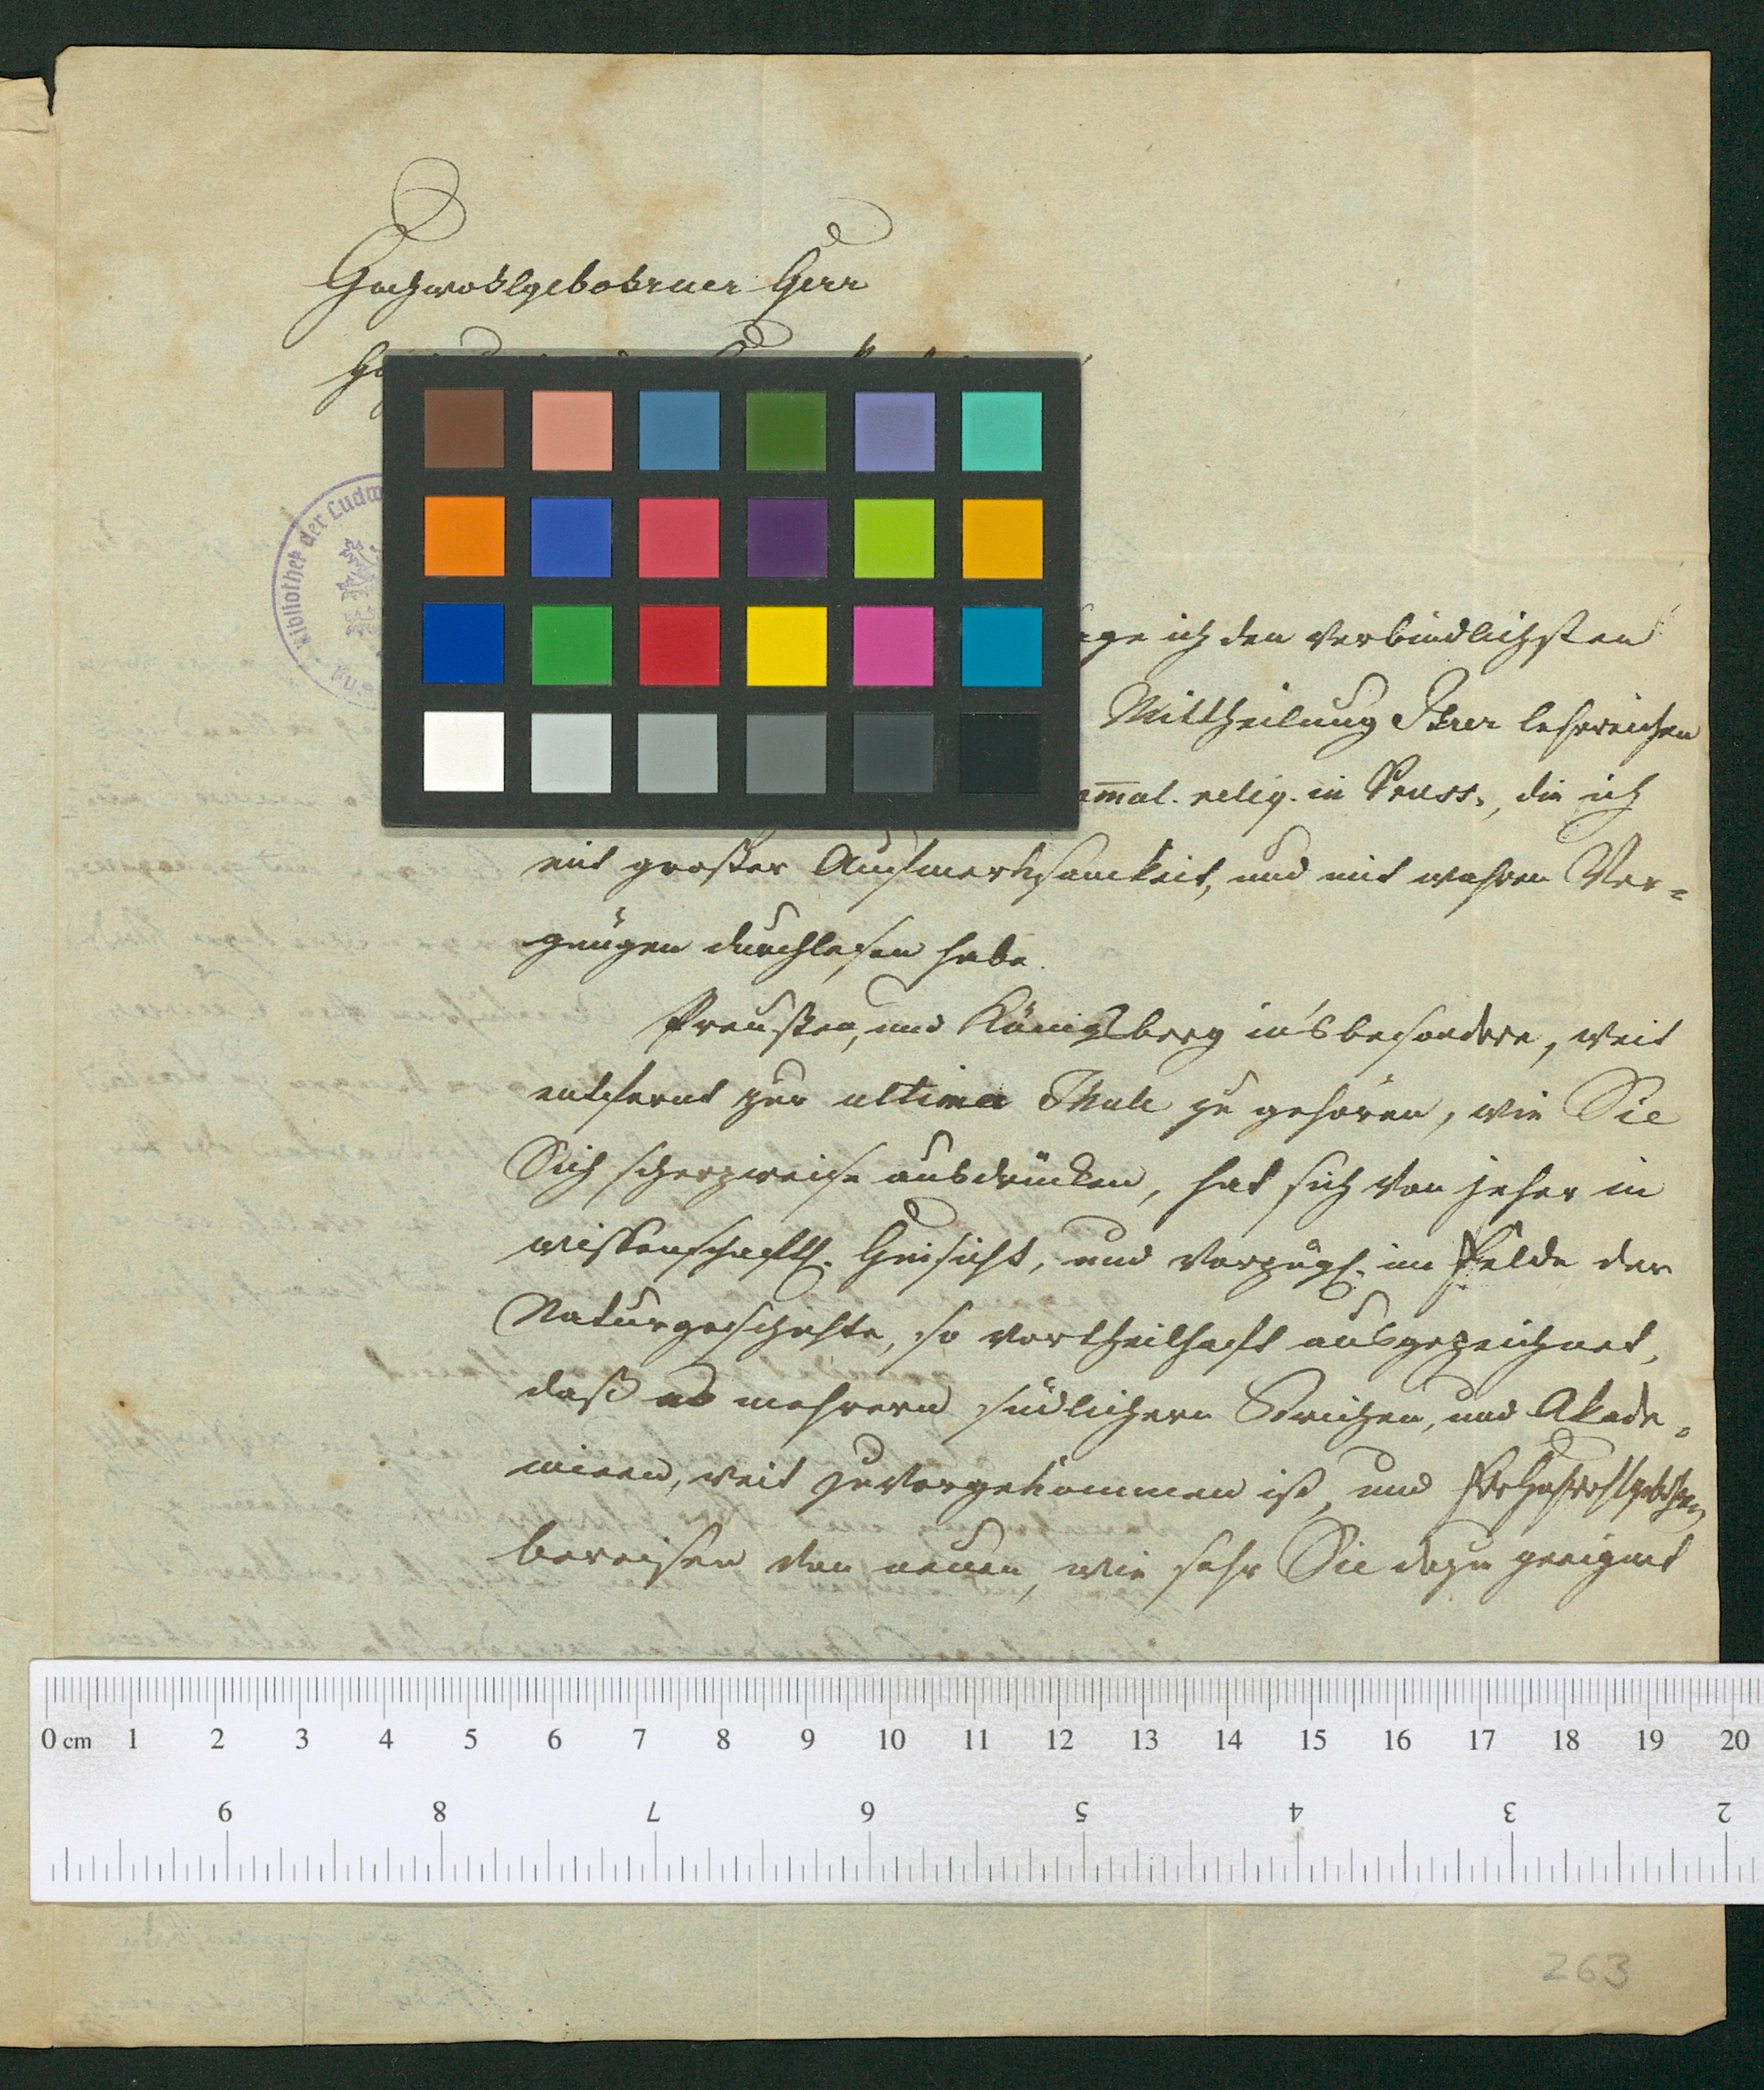 Hochwohlgebohrner Herr
Bibliothek der Ludw
ich den verbindlichsten
Mittheilung Ihrer lehrreichen
mal. relig. in Pruss., die ich
mit großer Aufmerksamkeit, und mit wahren Ver-
gnügen durchlesen habe.
Preußen, und Königsberg in's besondere, weit
entfernt zur ultima Thule zu gehören, wie Sie
Sich scherzweise ausdrücken, hat sich von jeher in
wissenschaftl. Hinsicht, und vorzügl. im Felde der
Naturgeschichte, so vortheilhaft ausgezeichnet,
daß es mehrern südlichern Strichen, und Akade-
mieen, weit zuvorgekommen ist, und
beweisen von neuen, wie sehr Sie dazu geeignet
0 cm 1 2 3 4 5 6 7 8 9 10 11 12 13 14 15 16 17 18 19 20
9 8 7 6 5 4 3 2
263